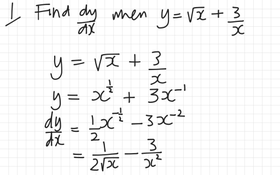 1 Find dy/dx when y = √x + 3/x
y = √x + 3/x
y = x^(1/2) + 3x^(-1)
dy/dx = 1/2 x^(-1/2) - 3x^(-2)
= 1/(2√x) - 3/x^2